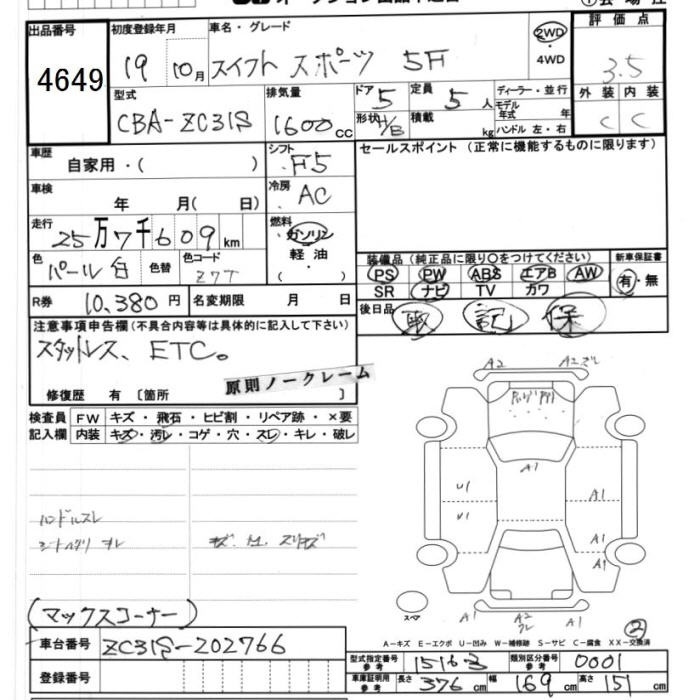 出品番号
4649
初度登録年月
19 10月
車名・グレード
スイフト スポーツ 5F
2WD・4WD
評価点
3.5
外装 内装
C C
型式
CBA-ZC31S
排気量
1600cc
ドア 5
形状 H/B
定員 5人
積載 kg
ディーラー・並行
モデル年式 年
ハンドル 左・右
車歴
自家用・( )
シフト
F5
セールスポイント (正常に機能するものに限ります)
車検
年 月( 日)
冷房
AC
走行
25万7千609km
燃料
ガソリン
軽油
・
( )
色
パール白
色替
色コード
Z7T
装備品 (純正品に限り○をつけてください)
PS PW ABS エアB AW
SR ナビ TV カワ
新車保証書
有・無
R券 10,380円
名変期限 月 日
後日品 取 記 保
注意事項申告欄(不具合内容等は具体的に記入して下さい)
スタットレス、ETC。
原則ノークレーム
修復歴 有 [箇所 ]
検査員記入欄
FW キズ・飛石・ヒビ割・リペア跡・×要
内装 キズ・汚レ・コゲ・穴・スレ・キレ・破レ
ハンドルスレ
A2 A2
A1
U1
U1
A1
A1
A1
A1 A2 A1
スペア
(マックスコーナー)
②
A-キズ E-エクボ U-凹み W-補修跡 S-サビ C-腐食 XX-交換済
車台番号 ZC31S-202766
登録番号
型式指定番号 参考 15163
類別区分番号 参考 0001
車庫証明用 参考 長さ 376cm 幅 169cm 高さ 151cm